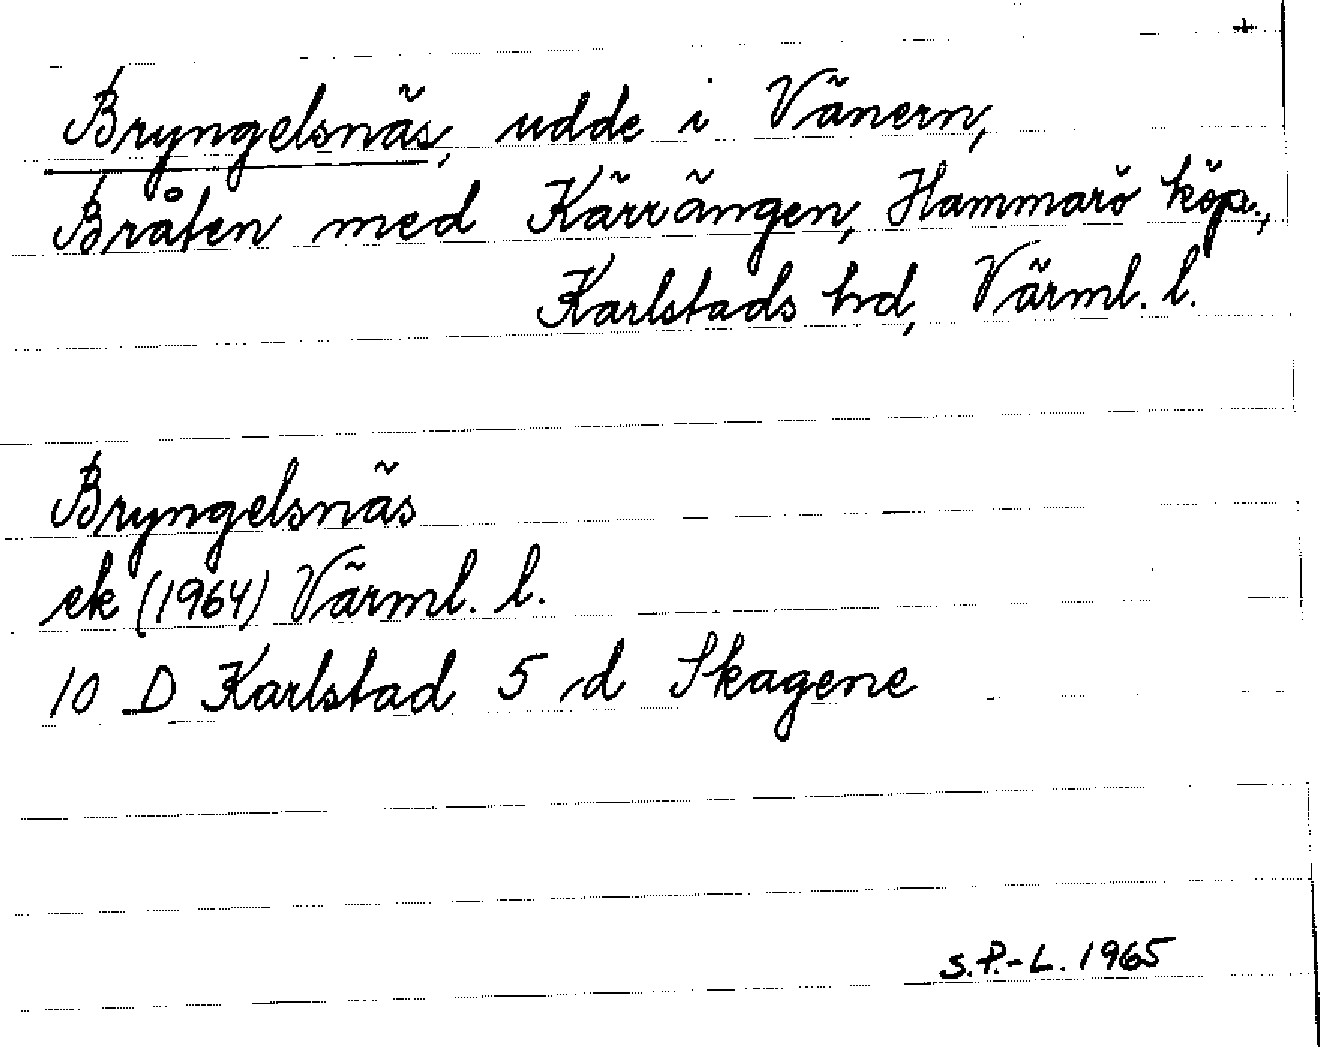 +
Bryngelsnäs, udde i Vänern,
Bråten med Kärrängen, Hammarö köp.,
Karlstads hd, Värml. l.
Bryngelsnäs
ek (1964) Värml. l.
10 D Karlstad 5 d Skagene
S.P.-L. 1965